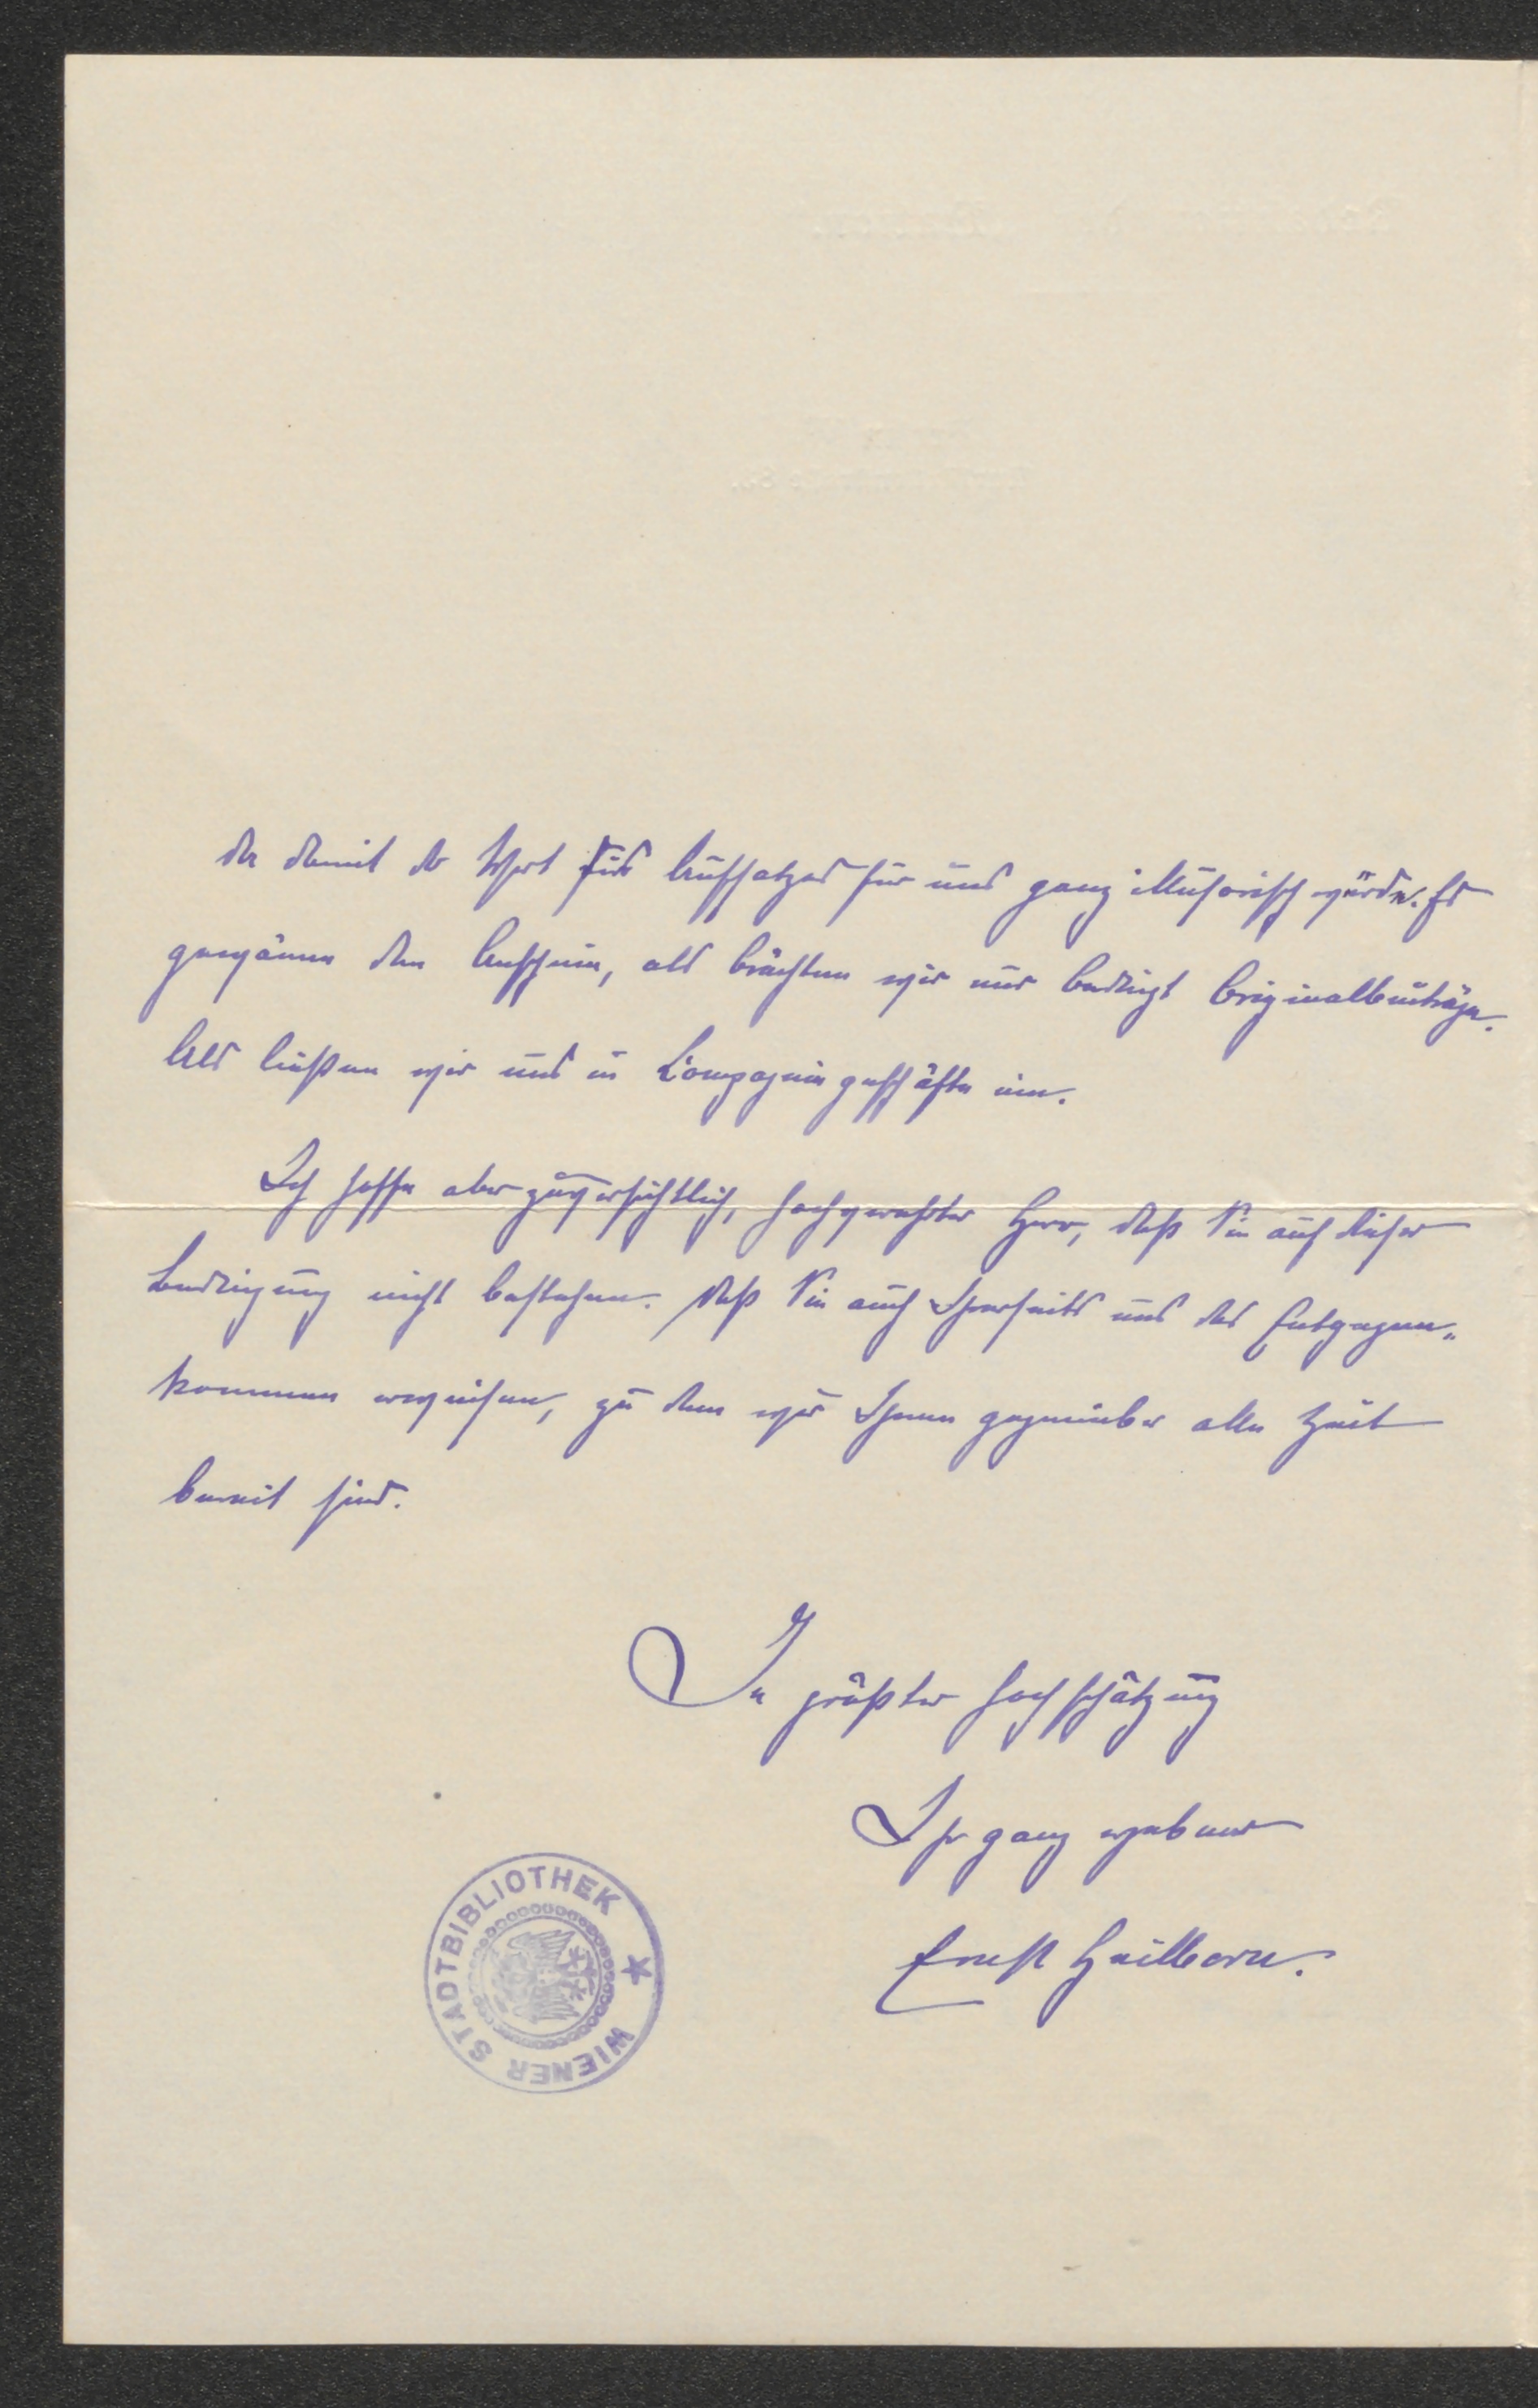 da damit der Wert des Aufsatzes für uns ganz illusorisch würde. Es
gewänne den Anschein, als brächten wir nur bedingt Originalbeiträge.
Als ließen wir uns in Compagniegeschäfte ein.
Ich hoffe aber zuversichtlich, hochverehrter Herr, daß Sie auf dieser
Bedingung nicht bestehen. Daß Sie auch Ihrerseits uns das Entgegen-
kommen erweisen, zu dem wir Ihnen gegenüber alle Zeit
bereit sind.
In größter Hochschätzung
Ihr ganz ergebener
Ernst Heilborn.
WIENER STADTBIBLIOTHEK